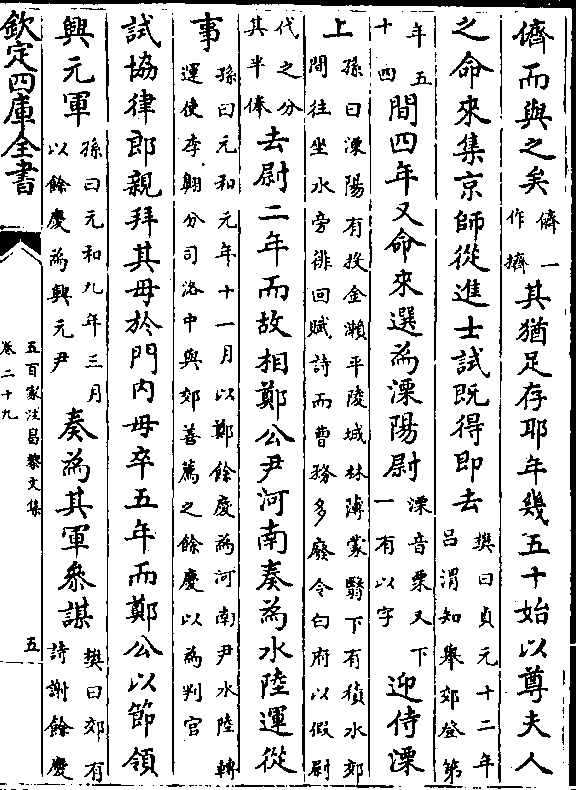 儕而與之矣儕一作擠其猶足存耶年幾五十始以尊夫人
之命來集京師從進士試既得即去樊曰貞元十二年吕渭知舉郊登第
年五十四間四年又命來選為溧陽尉溧音栗又下一有以字迎侍溧
上孫曰溧陽有投金瀨平陵城林薄蒙翳下有積水郊間往坐水旁徘回賦詩而曹務多廢令白府以假尉
代之分其半俸去尉二年而故相鄭公尹河南奏為水陸運從
事孫曰元和元年十一月以鄭餘慶為河南尹水陸轉運使李翺分司洛中與郊善薦之餘慶以為判官
試協律郎親拜其母於門內母卒五年而鄭公以節領
興元軍孫曰元和九年三月以餘慶為興元尹奏為其軍叅謀樊曰郊有詩謝餘慶
欽定四庫全書
五百家注昌黎文集
卷二十九
五